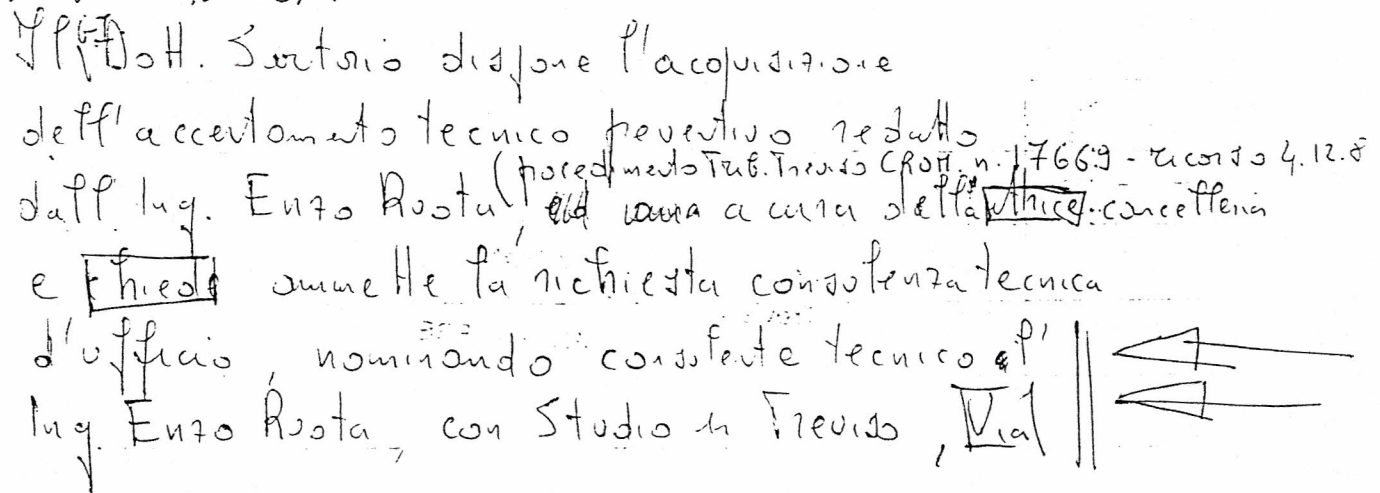 Il G.I. Dott. Sartorio dispone l'acquisizione
dell'accertamento tecnico preventivo redatto
(procedimento Trib. Treviso CRON. n. 17669 - ricorso 4.12.8
dall'Ing. Enzo Ruota, a cura della cancelleria
e chiede ammette la richiesta consulenza tecnica
d'ufficio, nominando consulente tecnico l'
Ing. Enzo Ruota, con Studio in Treviso, Via